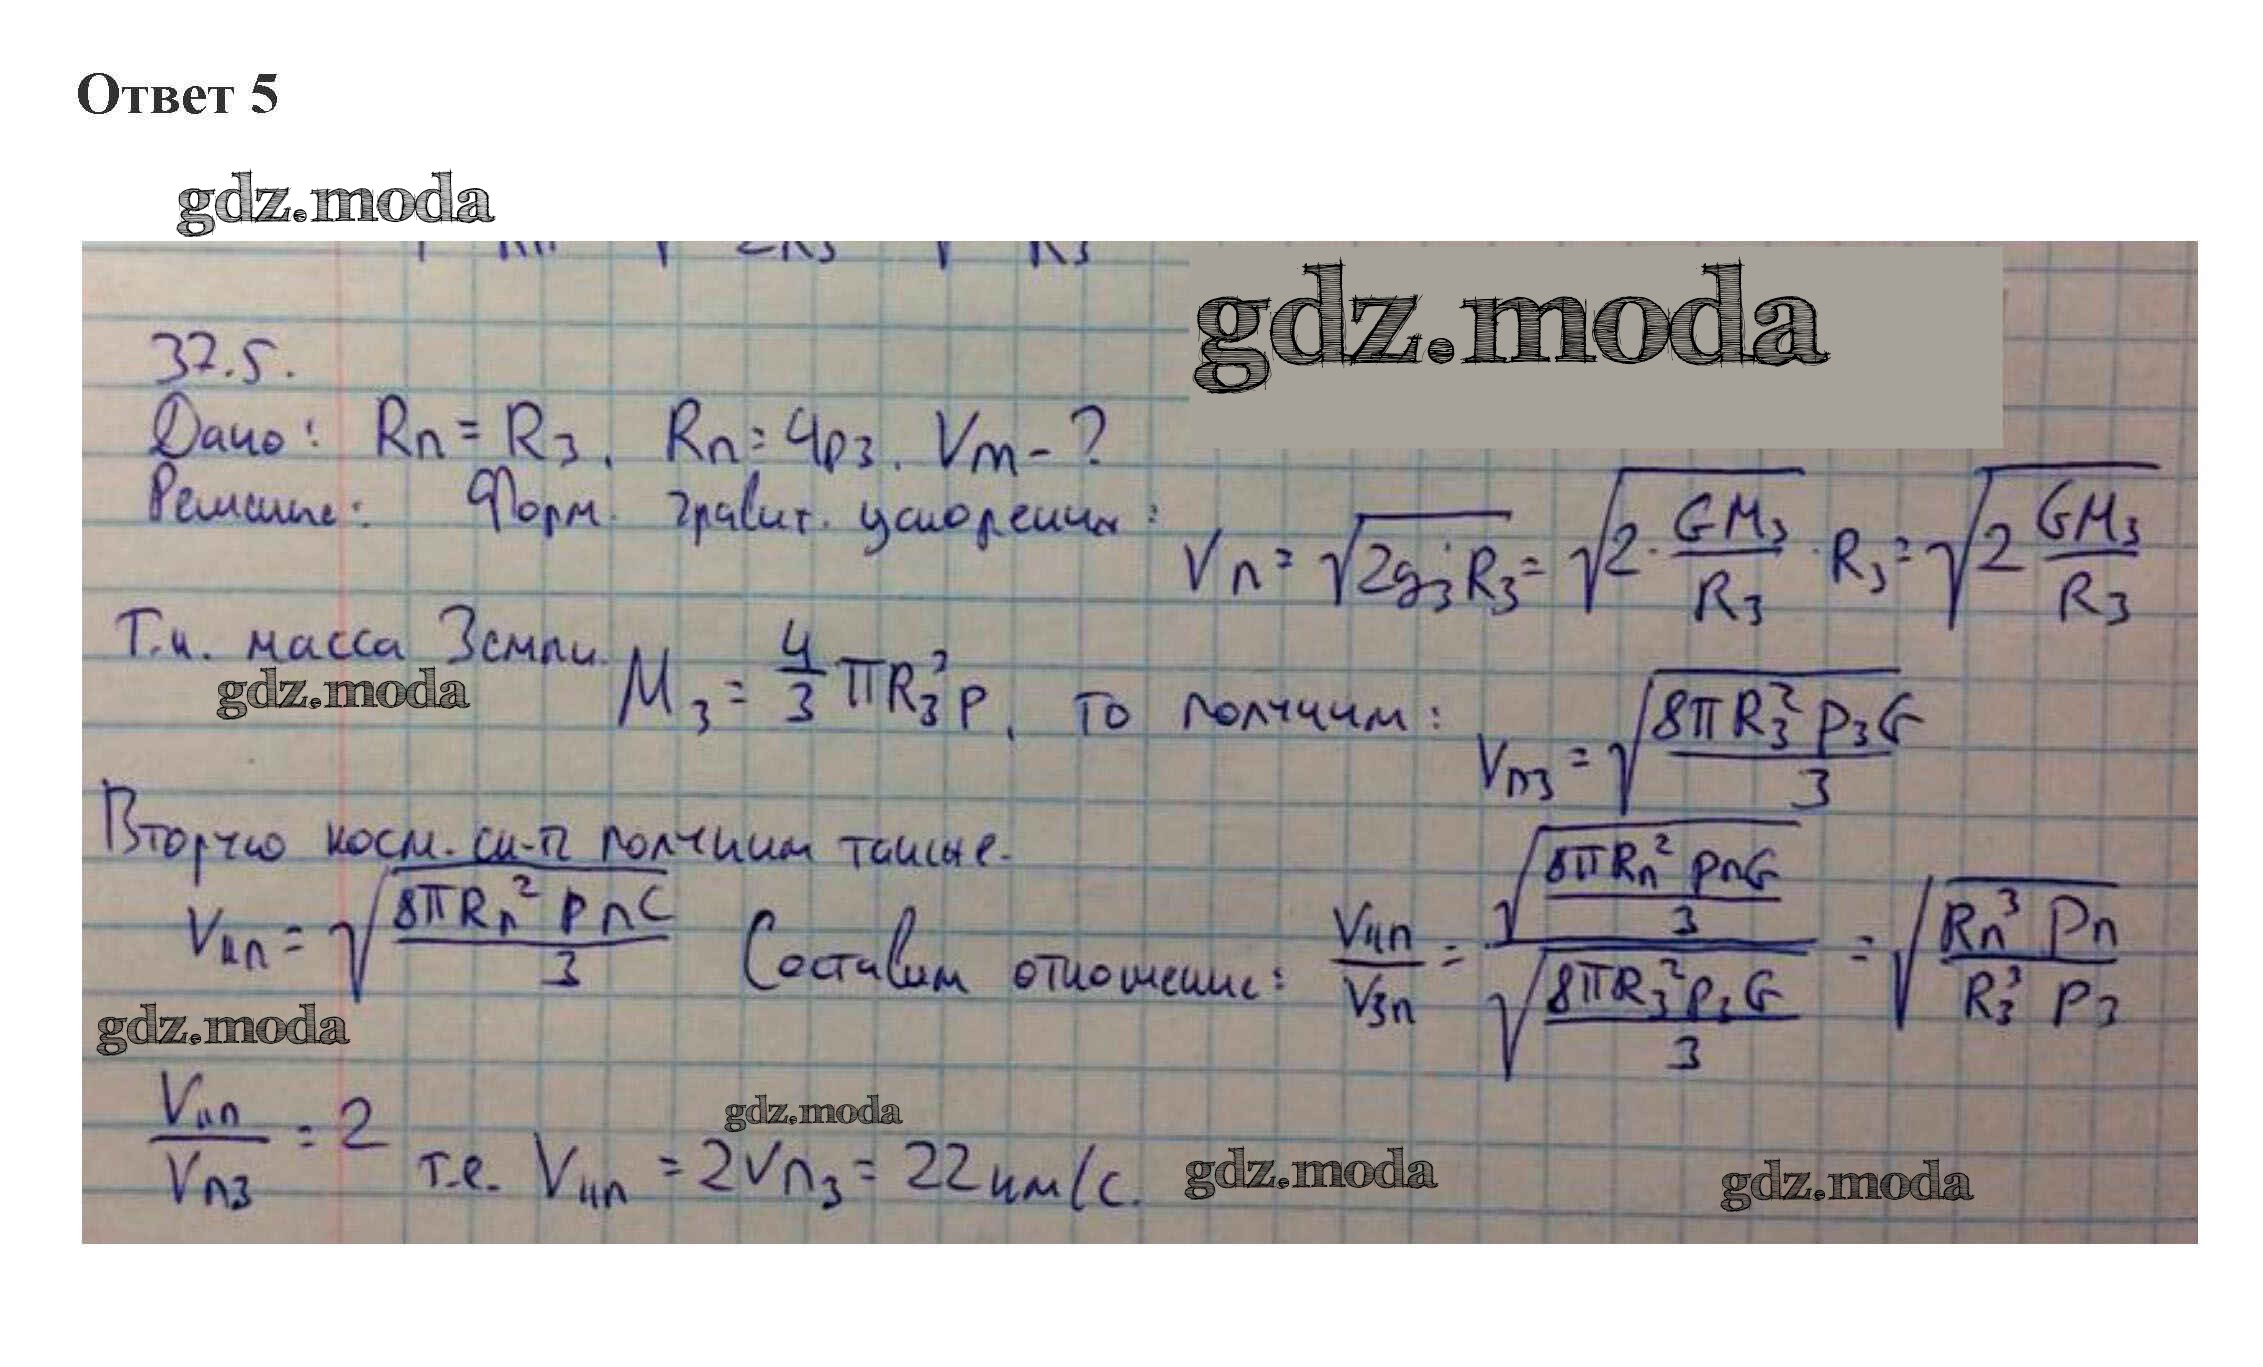 Ответ 5
gdz.moda
gdz.moda
37.5.
Дано: Rп = Rз. Rп = 4ρз. Vm - ?
Решение: Форм. гравит. ускорения: Vп = √(2gз·Rз) = √(2·GMз/Rз · Rз) = √(2GMз/Rз)
Т.к. масса Земли Mз = 4/3 πRз³ρ, то получим: Vпз = √(8πRз²ρзG/3)
gdz.moda
Вторую косм. ск-ть получим также.
VIIп = √(8πRп²ρпG/3) Составим отношение: VIIп/Vзп = √(8πRп²ρпG/3)/√(8πRз²ρзG/3) = √(Rп³ρп/Rз³ρз)
gdz.moda
gdz.moda
VIIп/Vпз = 2 т.е. VIIп = 2Vпз = 22 км/с.
gdz.moda
gdz.moda